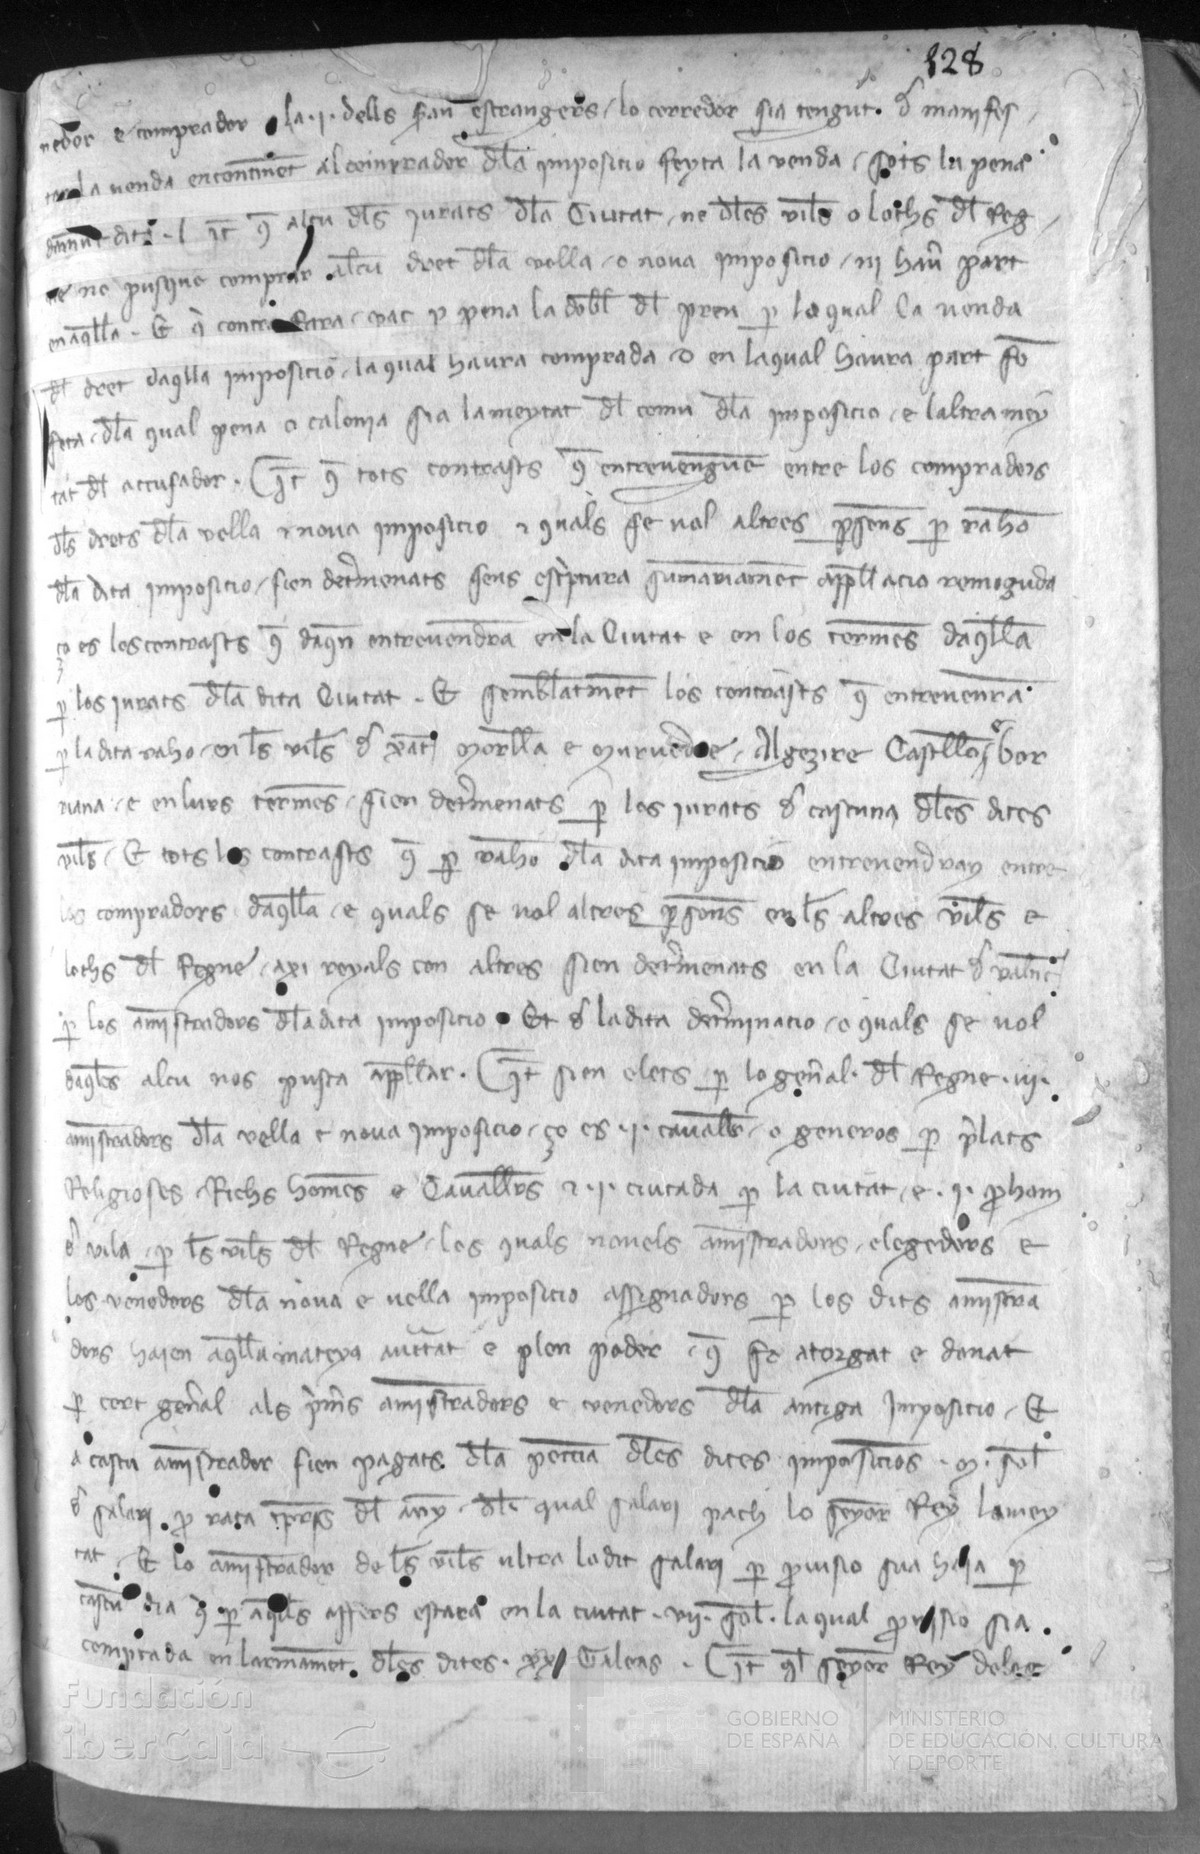 128
nedor e comprador la .i. dells seran estrangers lo corredor sia tengut d manifes
tar la venda encontinet al comprador dla imposicio feyta la venda sots la pena
damut dita . Itē q̄ alcu dls iurats dla Ciutat ne dles viles o lochs dl Reg
ne no pusque comprar alcu dret dla vella o nova imposicio ni hauer part
en aqlla . E q̄ contra fara pac p pena la dobl dl preu p lo qual la venda
dl dret daqlla imposicio la qual haura comprada o en laqual haura part fo
feta dla qual pena o calonia sia la meytat dl comu dla imposicio e laltra mey
tat dl accusador . Itē q̄ tots contrasts q̄ entrevengue entre los compradors
dls drets dla vella e nova imposicio e quals se vol altres psones p raho
dla dita imposicio sien det̄menats sens escptura sumariamet appllacio remoguda
ço es los contrasts q̄ daqn entrevendra en la Ciutat e en los termes daqlla
p los iurats dla dita Ciutat . E semblatmet los contrasts q̄ entrevenra
p la dita raho en les viles d xati morlla e murvedre Algezire Castello Bor
riana e en lurs termes sien det̄menats p los iurats d cascuna dles dites
viles E tots los contrasts q̄ p raho dla dita imposicio entrevendran entre
los compradors daqlla e quals se vol altres psones en ls altres viles e
lochs dl Regne axi reyals con altres sien det̄menats en la Ciutat d valnc
p los amistradors dla dita imposicio Et d la dita det̄minacio o quals se vol
daqles alcu nos pusca appllar . Itē sien elets p lo general dl Regne .iij.
amistradors dla vella e nova imposicio ço es .i. cavaller o generos p plats
Religioses Richs homes e Cavallers e .i. ciutada p la ciutat e .i. prohom
d vila p ls viles dl Regne los quals novels amistradors elegedors e
los venedors dla nova e vella imposicio assignadors p los dits amistra
dors haien aqlla mateya auttat e plen poder q̄ fo atorgat e donat
p cort general als pmers amistradors e venedors dla antiga Imposicio E
a cascu amistrador sien pagats dla peccia dles dites imposicions .m. sol
d salari p rata tpris dl any dl qual salari pach lo seyor Rey la mey
tat E lo amistrador de ls viles ultra lo dit salari p provisio sua haia p
cascu dia q̄ p aqls affers estara en la ciutat .vij. sol. la qual provisio sia
comptada en larmamet dles dites .xx. Galeas . Itē ql seyor Rey
Fundación
iberCaja
GOBIERNO
DE ESPAÑA
MINISTERIO
DE EDUCACIÓN, CULTURA
Y DEPORTE